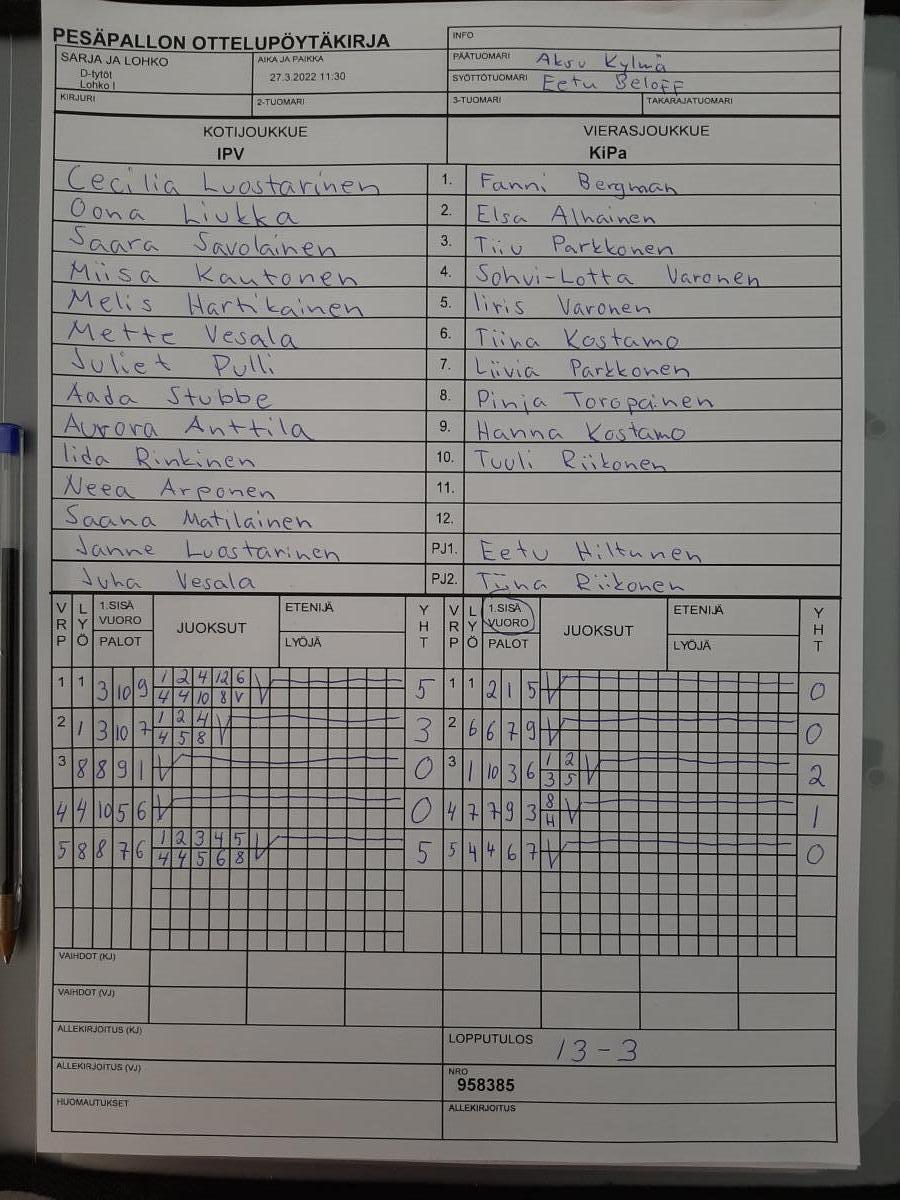 PESÄPALLON OTTELUPÖYTÄKIRJA
INFO
SARJA JA LOHKO
D-tytöt
Lohko I
AIKA JA PAIKKA
27.3.2022 11:30
PÄÄTUOMARI Aksu Kylmä
SYÖTTÖTUOMARI Eetu Beloff
KIRJURI 2-TUOMARI 3-TUOMARI TAKARAJATUOMARI
KOTIJOUKKUE VIERASJOUKKUE
IPV KiPa
Cecilia Luostarinen 1. Fanni Bergman
Oona Liukka 2. Elsa Alhainen
Saara Savolainen 3. Tiiu Parkkonen
Miisa Kautonen 4. Sohvi-Lotta Varonen
Melis Hartikainen 5. Iiris Varonen
Mette Vesala 6. Tiina Kostamo
Juliet Pulli 7. Liivia Parkkonen
Aada Stubbe 8. Pinja Toropainen
Aurora Anttila 9. Hanna Kostamo
Iida Rinkinen 10. Tuuli Riikonen
Neea Arponen 11.
Saana Matilainen 12.
Janne Luostarinen PJ1. Eetu Hiltunen
Juha Vesala PJ2. Tiina Riikonen
VRP LYÖ 1.SISÄ VUORO PALOT JUOKSUT ETENIJÄ LYÖJÄ YHT VRP LYÖ 1.SISÄ VUORO PALOT JUOKSUT ETENIJÄ LYÖJÄ YHT
1 1 3 10 9 1 2 4 12 6 5 1 1 2 1 5 0
4 4 10 8 V
2 1 3 10 7 1 2 4 3 2 6 6 7 9 0
4 5 8
3 8 8 9 1 0 3 1 10 3 6 1 2 2
3 5
4 4 10 5 6 0 4 7 7 9 3 8 1
H
5 8 8 7 6 1 2 3 4 5 5 5 4 4 6 7 0
4 4 5 6 8
VAIHDOT (KJ)
VAIHDOT (VJ)
ALLEKIRJOITUS (KJ)
LOPPUTULOS 13-3
ALLEKIRJOITUS (VJ)
NRO
958385
HUOMAUTUKSET
ALLEKIRJOITUS